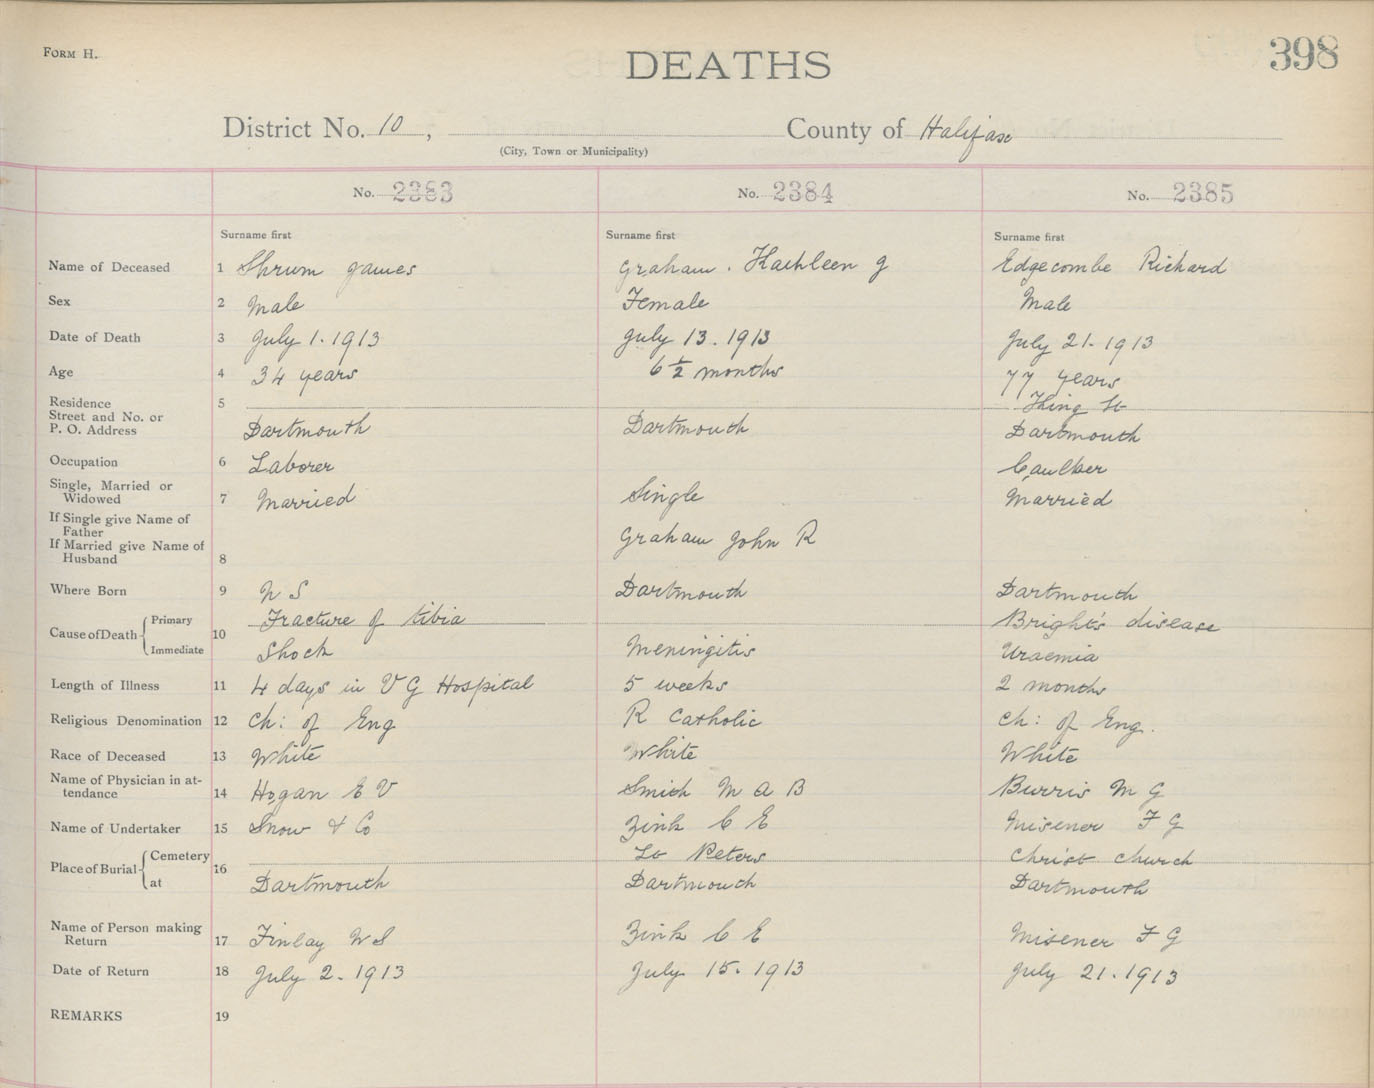 FORM H.
DEATHS
398
District No. 10, County of Halifax
(City, Town or Municipality)
No. 2383 No. 2384 No. 2385
Surname first Surname first Surname first
Name of Deceased 1 Shrum James Graham. Kathleen G Edgecombe Richard
Sex 2 Male Female Male
Date of Death 3 July 1. 1913 July 13. 1913 July 21. 1913
Age 4 34 years 6 1/2 months 77 years
Residence 5 King St
Street and No. or
P. O. Address Dartmouth Dartmouth Dartmouth
Occupation 6 Laborer Caulker
Single, Married or
Widowed 7 Married Single Married
If Single give Name of
Father
If Married give Name of Graham John R
Husband 8
Where Born 9 N S Dartmouth Dartmouth
Cause of Death Primary 10 Fracture of tibia Bright's disease
Immediate Shock Meningitis Uraemia
Length of Illness 11 4 days in V G Hospital 5 weeks 2 months
Religious Denomination 12 Ch: of Eng R Catholic Ch: of Eng.
Race of Deceased 13 White White White
Name of Physician in at-
tendance 14 Hogan E V Smith M A B Burris M G
Name of Undertaker 15 Snow & Co Zink C E Misener F G
Place of Burial Cemetery 16 St Peters Christ Church
at Dartmouth Dartmouth Dartmouth
Name of Person making
Return 17 Finlay W S Zink C E Misener F G
Date of Return 18 July 2. 1913 July 15. 1913 July 21. 1913
REMARKS 19